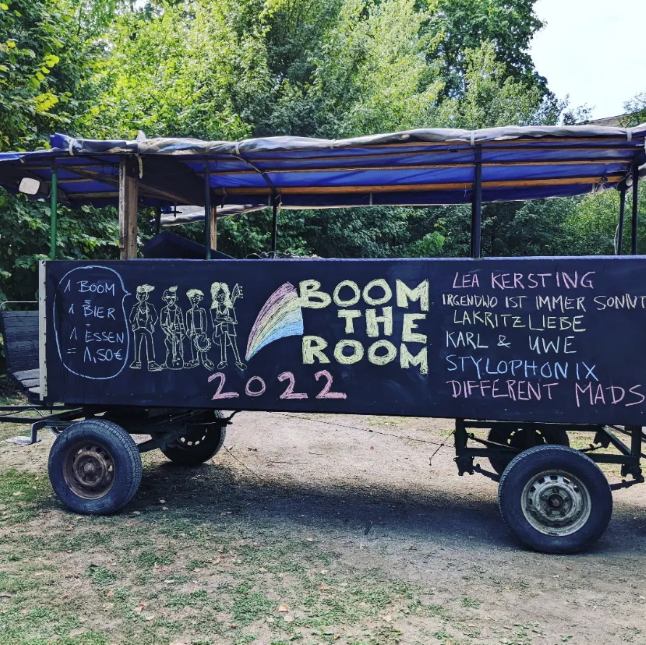 1 BOOM
=
1 BIER
=
1 ESSEN
= 1,50€
BOOM
THE
ROOM
2022
LEA KERSTING
IRGENDWO IST IMMER SONNT
LAKRITZLIEBE
KARL & UWE
STYLOPHONIX
DIFFERENT MADS